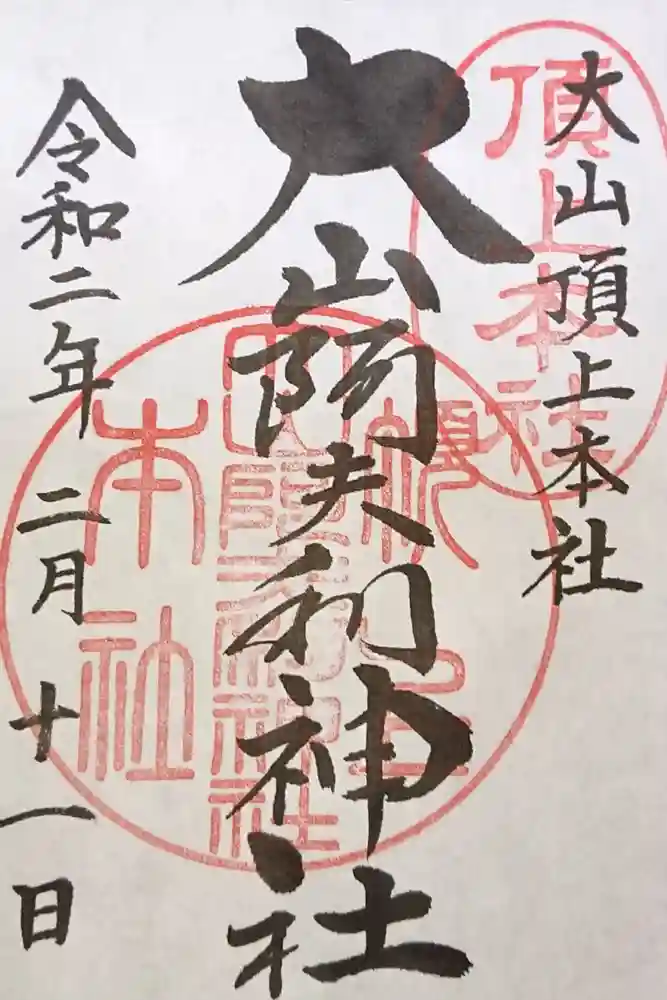 大山頂上本社
頂上本社
大山阿夫利神社
大山阿夫利神社
本社
令和二年 二月 十一日